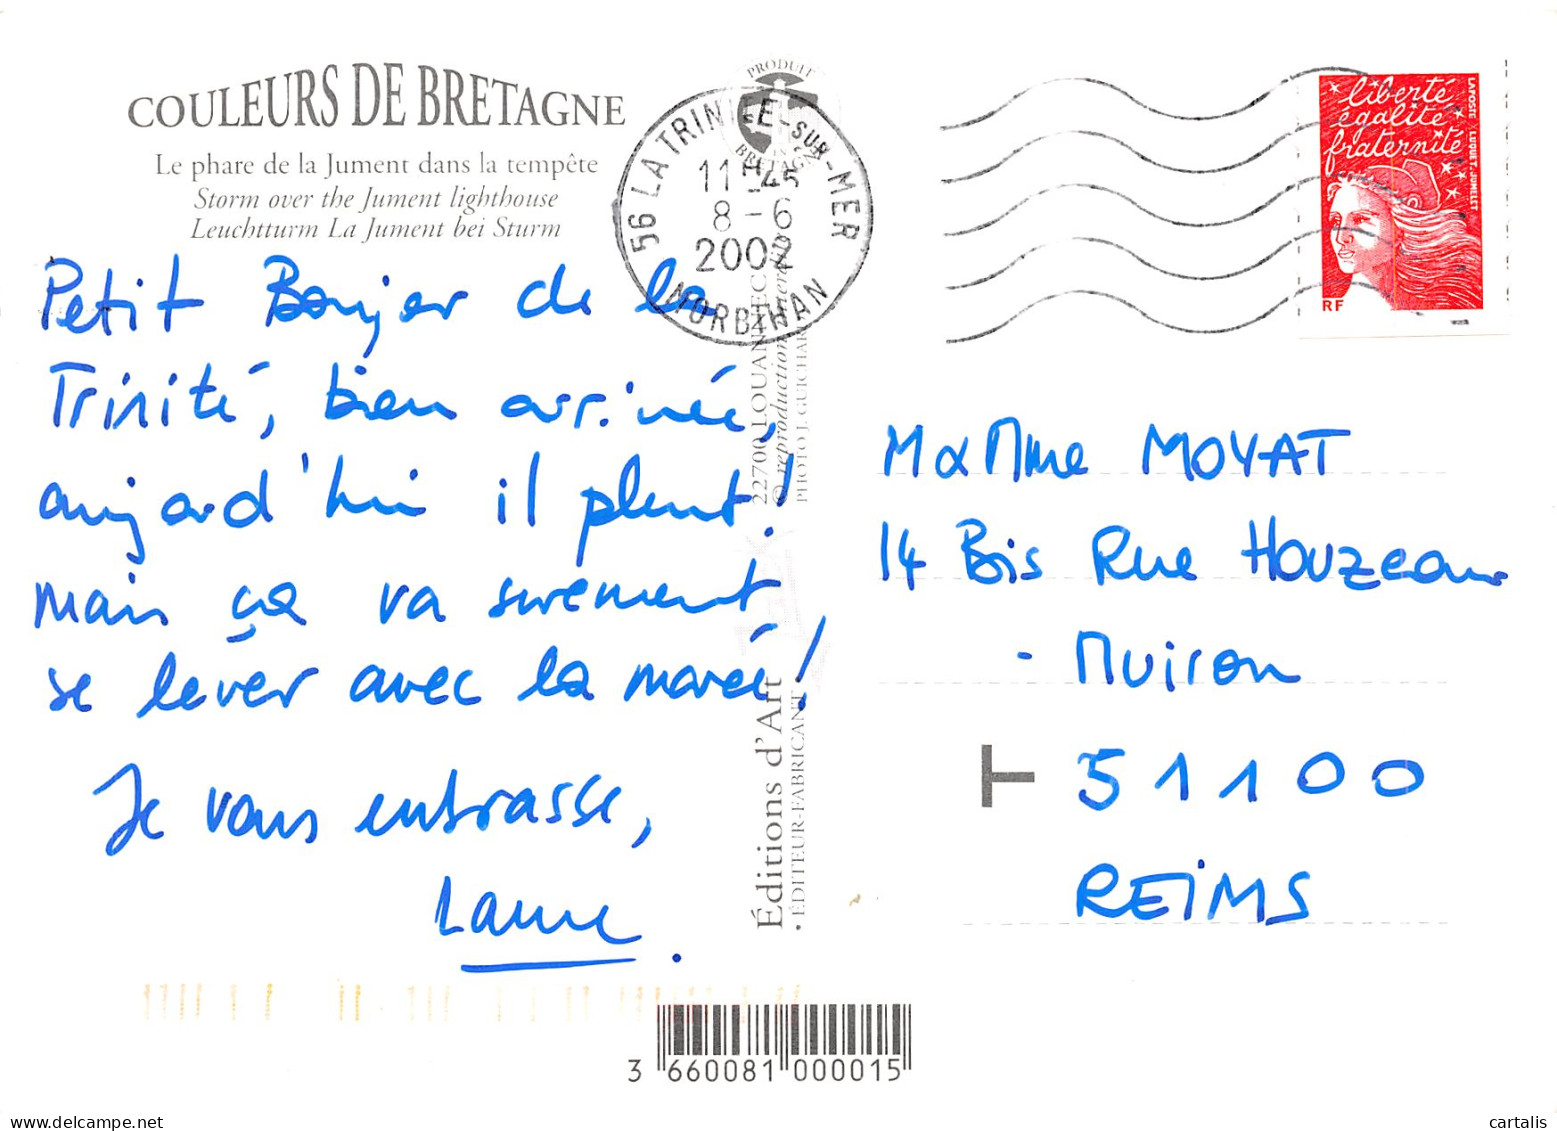 COULEURS DE BRETAGNE
Le phare de la Jument dans la tempête
Storm over the Jument lighthouse
Leuchtturm La Jument bei Sturm
Petit Bonjor de la
Trinité, bien arrivée,
aujord'hui il pleut!
mais ça va surement
se lever avec la marée!
Je vous embrasse,
PRODUIT
EN
BRETAGNE
56 LA TRINITE-SUR-MER
11H45
8-6
2002
MORBIHAN
22700 LOUANNEC
© reproduction
PHOTO J. GUICHARD
Éditions d'Art
• ÉDITEUR-FABRICANT
liberté
égalité
fraternité
LA POSTE
LUQUET JUMELET
RF
M & Mme MOYAT
14 Bis Rue Houzeau
- Muiron
T 51100
REIMS
3 660081 000015
cartalis